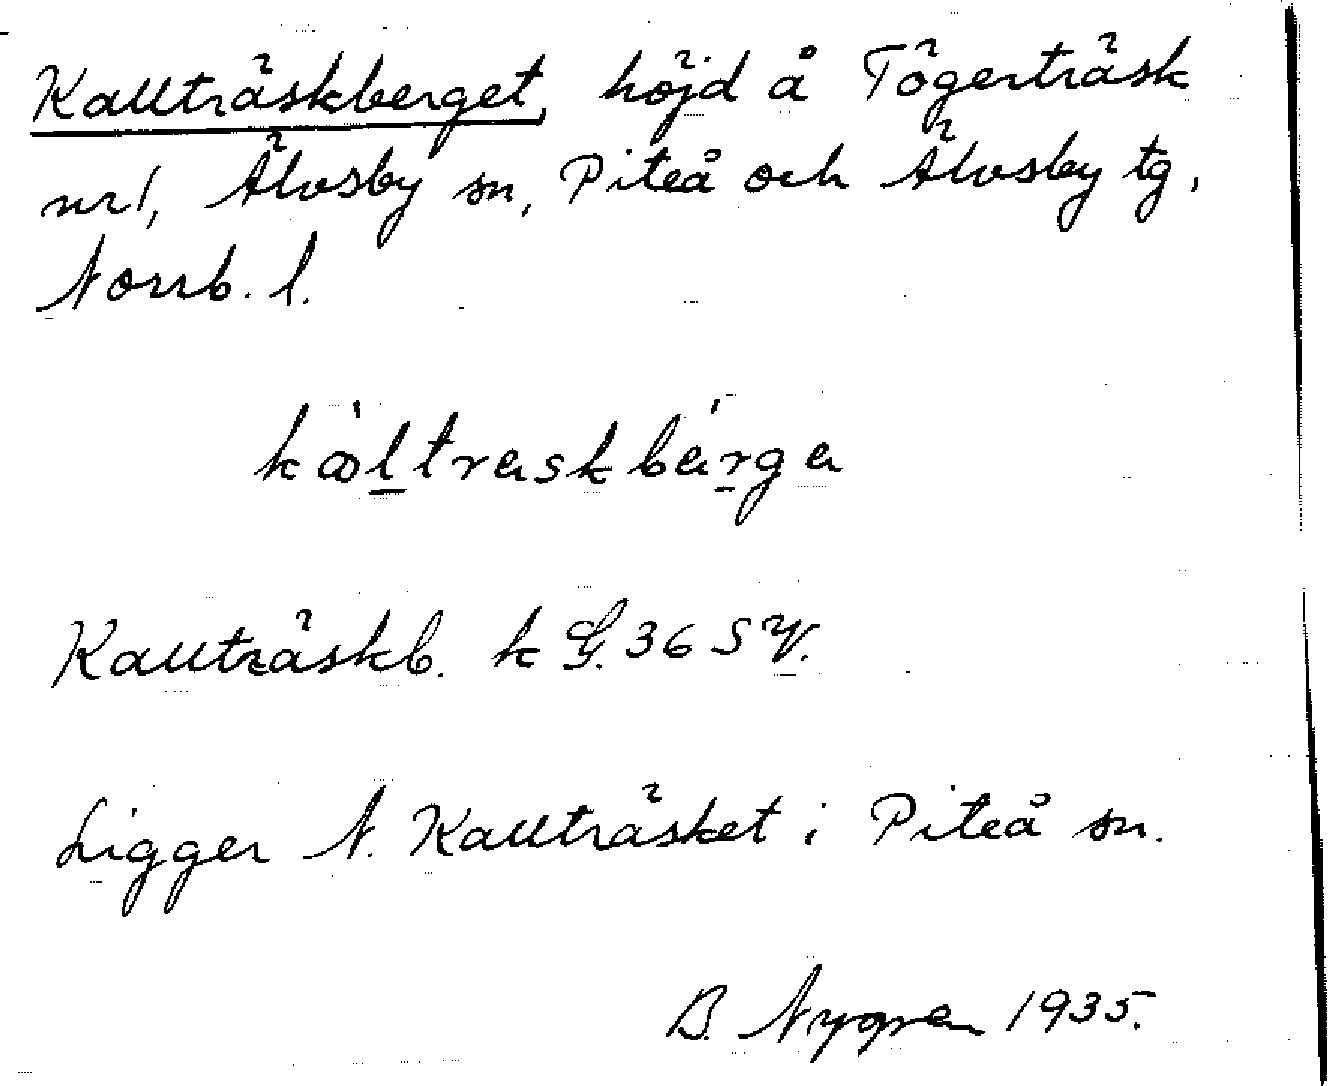 Kallträskberget, höjd å Tögerträsk
nr 1, Älvsby sn, Piteå och Älvsby tg,
Norrb. l.
kåltraskbärga
Kallträskb. k G. 36 SV.
Ligger N. Kallträsket i Piteå sn.
B. Nygren 1935.